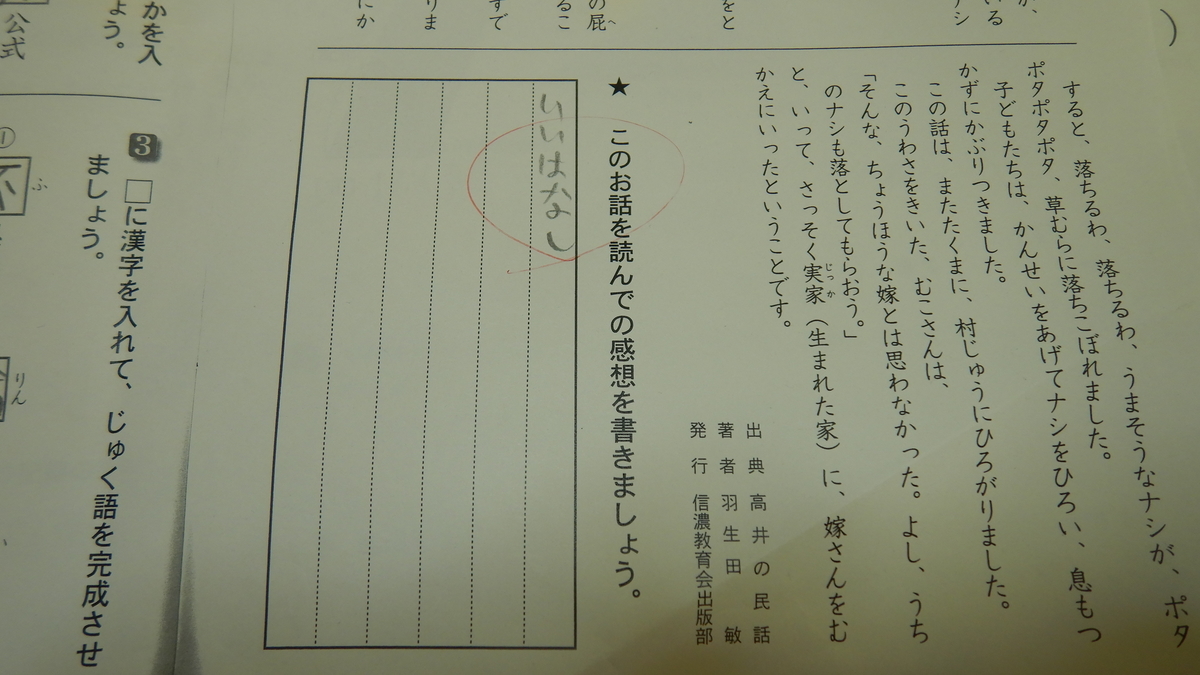 が、
いる
ナシ
をと
の屁
へ
るこ
すで
りま
にか
）
すると、落ちるわ、落ちるわ、うまそうなナシが、ポタ
ポタポタポタ、草むらに落ちこぼれました。
子どもたちは、かんせいをあげてナシをひろい、息もつ
かずにかぶりつきました。
この話は、またたくまに、村じゅうにひろがりました。
このうわさをきいた、むこさんは、
「そんな、ちょうほうな嫁とは思わなかった。よし、うち
のナシも落としてもらおう。」
と、いって、さっそく実家（生まれた家）に、嫁さんをむ
じっか
かえにいったということです。
出典 高井の民話
著者 羽生田 敏
発行 信濃教育会出版部
★ このお話を読んでの感想を書きましょう。
いいはなし
かを入
ょう。
公式
3 □に漢字を入れて、じゅく語を完成させ
ましょう。
①
ふ
りん